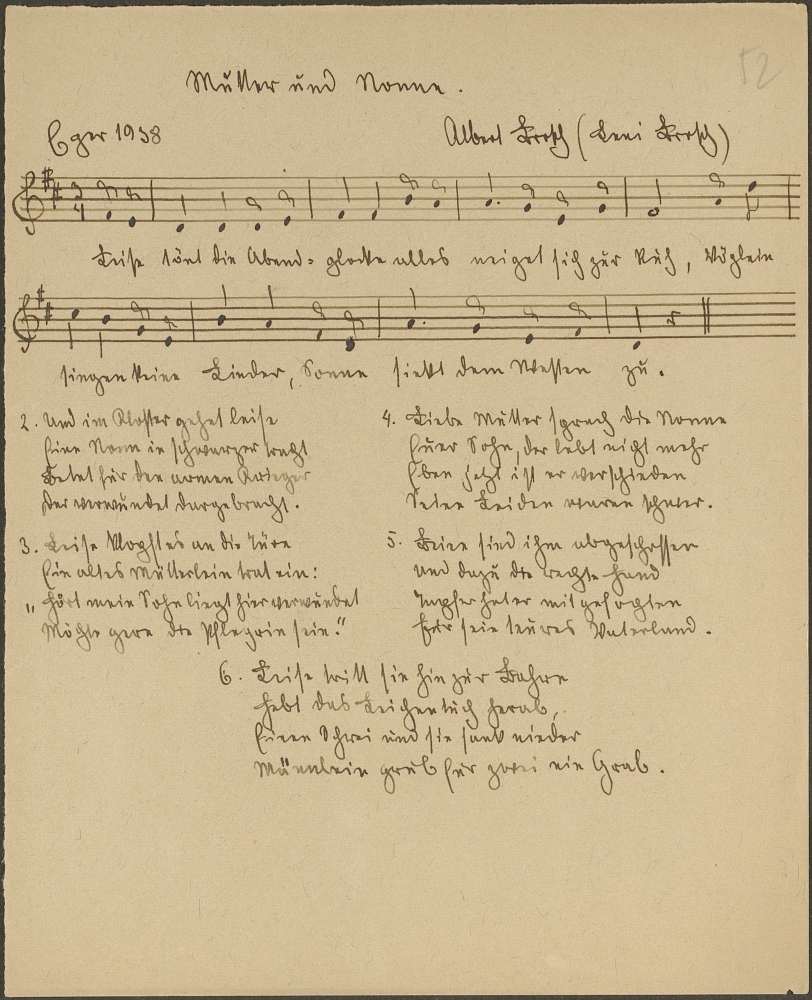 52
Mutter und Nonne.
Eger 1938
Albert Brosch (Leni Brosch)
3/4
Leise tönt die Abend=glocke alles neiget sich zur Ruh, Vöglein
singen keine Lieder, Sonne sinkt dem Westen zu.
2. Und im Kloster gehet leise
Eine Nonn in schwarzer Tracht
Betet für den armen Krieger
Der verwundet dargebracht.
3. Leise klopft es an die Türe
Ein altes Mütterlein trat ein:
„Hört mein Sohn liegt hier verwundet
Möchte gern die Pflegrin sein."
4. Liebe Mutter sprach die Nonne
Euer Sohn, der lebt nicht mehr
Eben jetzt ist er verschieden
Seine Leiden waren schwer.
5. Beine sind ihm abgeschossen
und dazu die rechte Hand
Tapfer hat er mitgefochten
Für sein teures Vaterland.
6. Leise tritt sie hin zur Bahre
Hebt das Leichentuch herab,
Einen Schrei und sie sank nieder
grub für zwei ein Grab.